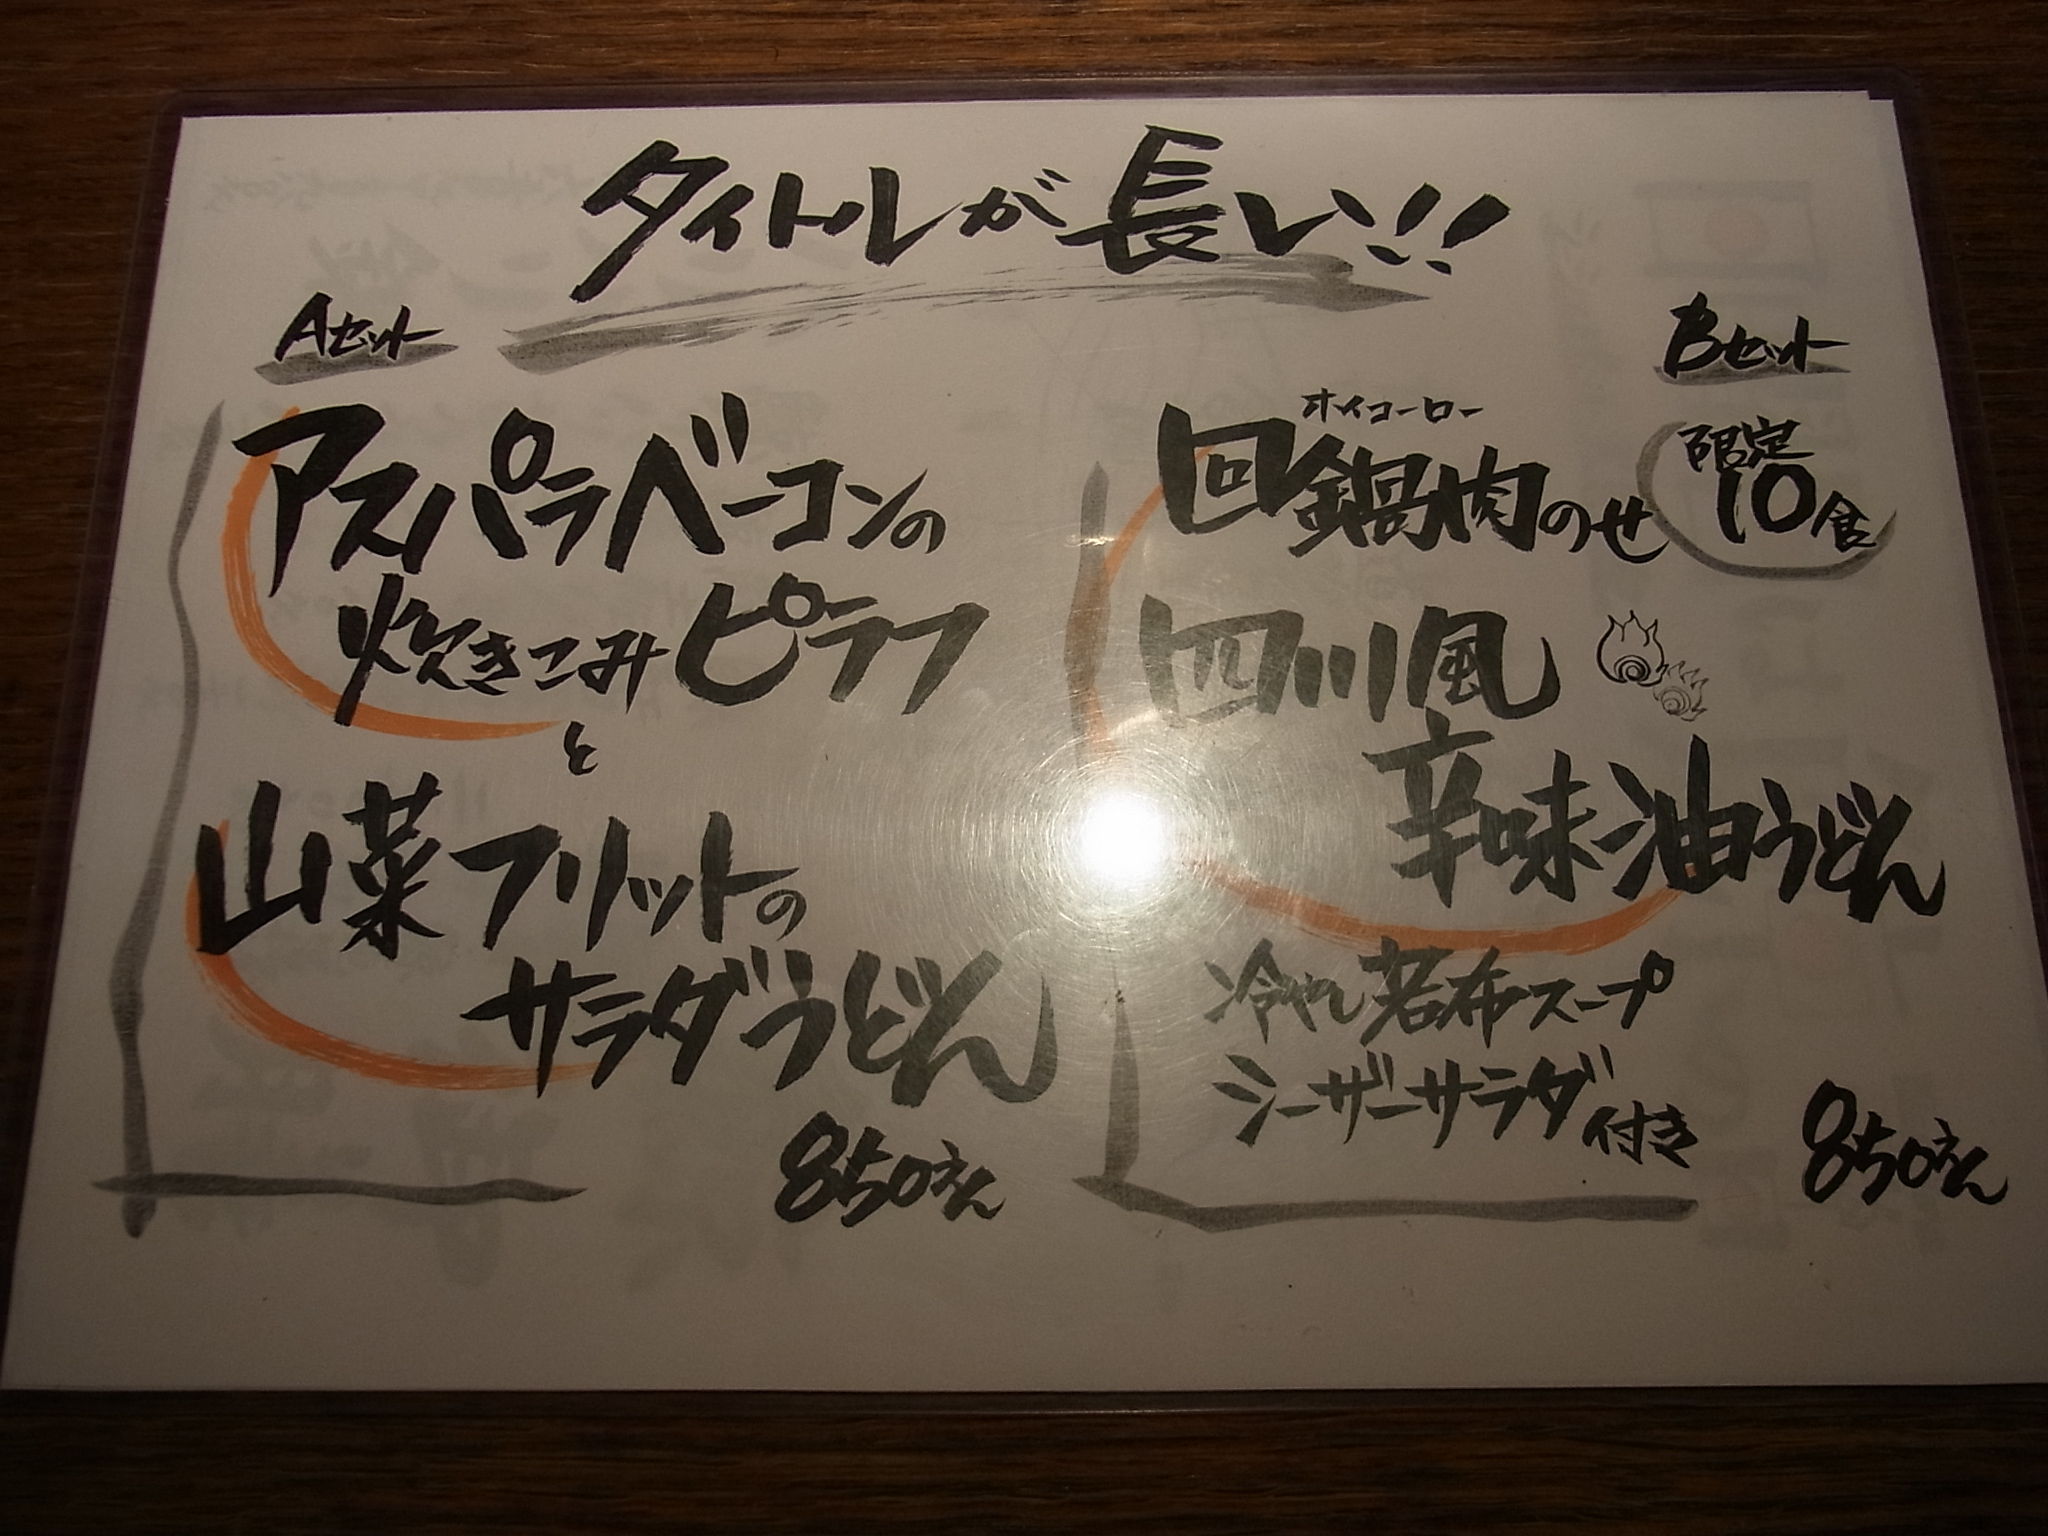 タイトルが長い!!
Aセット
アスパラベーコンの
炊きこみピラフ
と
山菜フリットの
サラダうどん
850えん
Bセット
限定
10食
ホイコーロー
回鍋肉のせ
四川風
辛味油うどん
冷やし若布スープ
シーザーサラダ付き
850えん